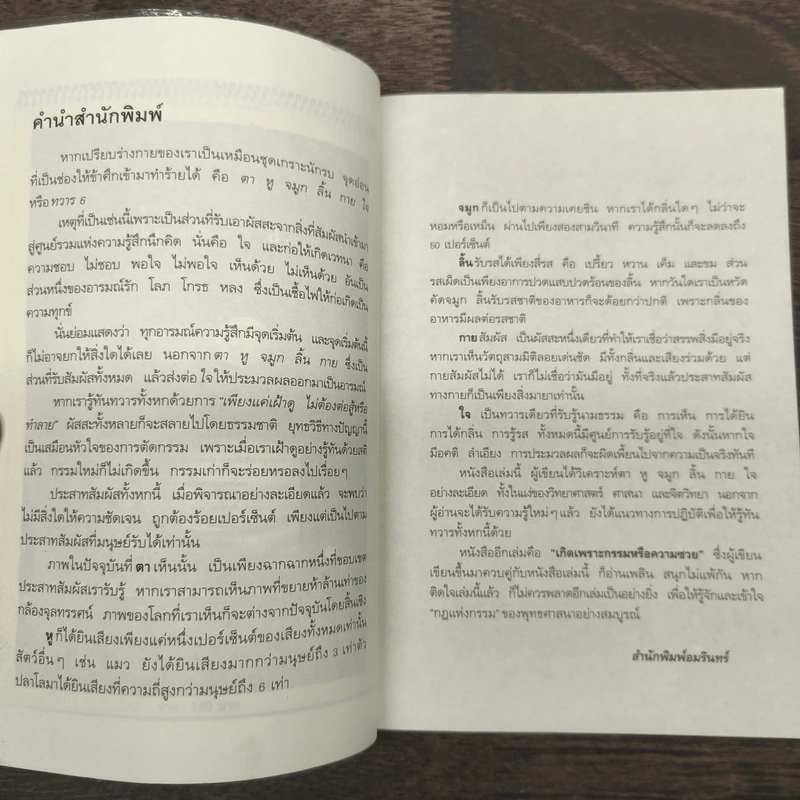 คำนำสำนักพิมพ์
หากเปรียบร่างกายของเราเป็นเหมือนชุดเกราะนักรบ จุดอ่อน
ที่เป็นช่องให้ข้าศึกเข้ามาทำร้ายได้ คือ ตา หู จมูก ลิ้น กาย ใจ
หรือทวาร 6
เหตุที่เป็นเช่นนี้เพราะเป็นส่วนที่รับเอาผัสสะจากสิ่งที่สัมผัสนำเข้ามา
สู่ศูนย์รวมแห่งความรู้สึกนึกคิด นั่นคือ ใจ และก่อให้เกิดเวทนา คือ
ความชอบ ไม่ชอบ พอใจ ไม่พอใจ เห็นด้วย ไม่เห็นด้วย อันเป็น
ส่วนหนึ่งของอารมณ์รัก โลภ โกรธ หลง ซึ่งเป็นเชื้อไฟให้ก่อเกิดเป็น
ความทุกข์
นั่นย่อมแสดงว่า ทุกอารมณ์ความรู้สึกมีจุดเริ่มต้น และจุดเริ่มต้นนี้
ก็ไม่อาจยกให้สิ่งใดได้เลย นอกจาก ตา หู จมูก ลิ้น กาย ซึ่งเป็น
ส่วนที่รับสัมผัสทั้งหมด แล้วส่งต่อ ใจ ให้ประมวลผลออกมาเป็นอารมณ์
หากเรารู้ทันทวารทั้งหกด้วยการ "เพียงแค่เฝ้าดู ไม่ต้องต่อสู้หรือ
ทำลาย" ผัสสะทั้งหลายก็จะสลายไปโดยธรรมชาติ ยุทธวิธีทางปัญญานี้
เป็นเสมือนหัวใจของการตัดกรรม เพราะเมื่อเราเฝ้าดูอย่างรู้ทันด้วยสติ
แล้ว กรรมใหม่ก็ไม่เกิดขึ้น กรรมเก่าก็จะร่อยหรอลงไปเรื่อยๆ
ประสาทสัมผัสทั้งหกนี้ เมื่อพิจารณาอย่างละเอียดแล้ว จะพบว่า
ไม่มีสิ่งใดให้ความชัดเจน ถูกต้องร้อยเปอร์เซ็นต์ เพียงแต่เป็นไปตาม
ประสาทสัมผัสที่มนุษย์รับได้เท่านั้น
ภาพในปัจจุบันที่ ตา เห็นนั้น เป็นเพียงฉากฉากหนึ่งที่ขอบเขต
ประสาทสัมผัสเรารับรู้ หากเราสามารถเห็นภาพที่ขยายห้าล้านเท่าของ
กล้องจุลทรรศน์ ภาพของโลกที่เราเห็นก็จะต่างจากปัจจุบันโดยสิ้นเชิง
หู ก็ได้ยินเสียงเพียงแค่หนึ่งเปอร์เซ็นต์ของเสียงทั้งหมดเท่านั้น
สัตว์อื่นๆ เช่น แมว ยังได้ยินเสียงมากกว่ามนุษย์ถึง 3 เท่าตัว
ปลาโลมาได้ยินเสียงที่ความถี่สูงกว่ามนุษย์ถึง 6 เท่า
จมูก ก็เป็นไปตามความเคยชิน หากเราได้กลิ่นใดๆ ไม่ว่าจะ
หอมหรือเหม็น ผ่านไปเพียงสองสามวินาที ความรู้สึกนั้นก็จะลดลงถึง
50 เปอร์เซ็นต์
ลิ้น รับรสได้เพียงสี่รส คือ เปรี้ยว หวาน เค็ม และขม ส่วน
รสเผ็ดเป็นเพียงอาการปวดแสบปวดร้อนของลิ้น หากวันใดเราเป็นหวัด
คัดจมูก ลิ้นรับรสชาติของอาหารก็จะด้อยกว่าปกติ เพราะกลิ่นของ
อาหารมีผลต่อรสชาติ
กาย สัมผัส เป็นผัสสะหนึ่งเดียวที่ทำให้เราเชื่อว่าสรรพสิ่งมีอยู่จริง
หากเราเห็นวัตถุสามมิติลอยเด่นชัด มีทั้งกลิ่นและเสียงร่วมด้วย แต่
กายสัมผัสไม่ได้ เราก็ไม่เชื่อว่ามันมีอยู่ ทั้งที่จริงแล้วประสาทสัมผัส
ทางกายก็เป็นเพียงสิ่งมายาเท่านั้น
ใจ เป็นทวารเดียวที่รับรู้นามธรรม คือ การเห็น การได้ยิน
การได้กลิ่น การรู้รส ทั้งหมดนี้มีศูนย์การรับรู้อยู่ที่ใจ ดังนั้นหากใจ
มีอคติ ลำเอียง การประมวลผลก็จะผิดเพี้ยนไปจากความเป็นจริงทันที
หนังสือเล่มนี้ ผู้เขียนได้วิเคราะห์ตา หู จมูก ลิ้น กาย ใจ
อย่างละเอียด ทั้งในแง่ของวิทยาศาสตร์ ศาสนา และจิตวิทยา นอกจาก
ผู้อ่านจะได้รับความรู้ใหม่ๆ แล้ว ยังได้แนวทางการปฏิบัติเพื่อให้รู้ทัน
ทวารทั้งหกนี้ด้วย
หนังสืออีกเล่มคือ "เกิดเพราะกรรมหรือความซวย" ซึ่งผู้เขียน
เขียนขึ้นมาควบคู่กับหนังสือเล่มนี้ ก็อ่านเพลิน สนุกไม่แพ้กัน หาก
ติดใจเล่มนี้แล้ว ก็ไม่ควรพลาดอีกเล่มเป็นอย่างยิ่ง เพื่อให้รู้จักและเข้าใจ
"กฎแห่งกรรม" ของพุทธศาสนาอย่างสมบูรณ์
สำนักพิมพ์อมรินทร์